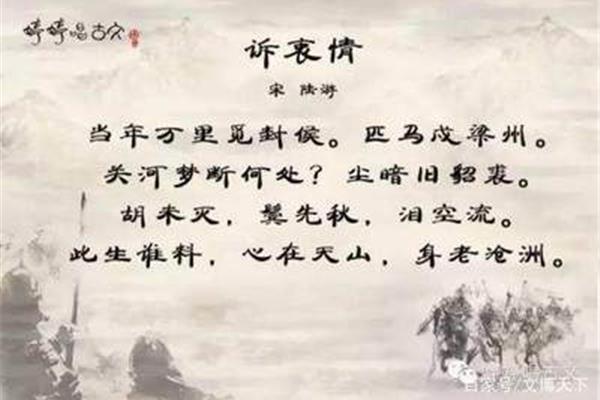 婷婷唱古文
诉衷情
宋 陆游
当年万里觅封侯。匹马戍梁州。
关河梦断何处？尘暗旧貂裘。
胡未灭，鬓先秋，泪空流。
此生谁料，心在天山，身老沧洲。
百家号/文博天下